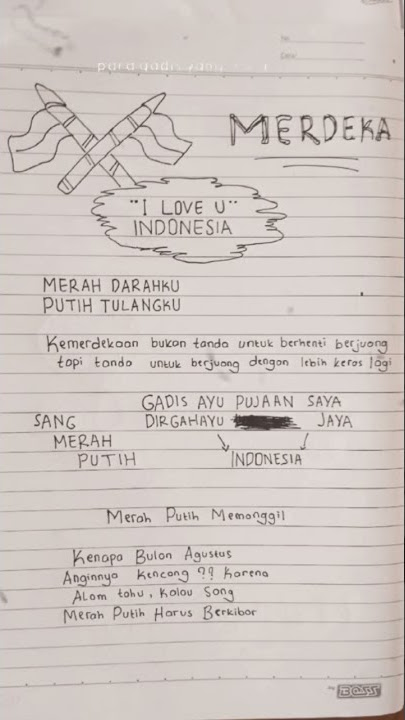 No.
Date
MERDEKA
"I LOVE U"
INDONESIA
MERAH DARAHKU
PUTIH TULANGKU
Kemerdekaan bukan tanda untuk berhenti berjuang
tapi tanda untuk berjuang dengan lebih keras lagi
GADIS AYU PUJAAN SAYA
SANG DIRGAHAYU JAYA
MERAH
PUTIH INDONESIA
Merah Putih Memanggil
Kenapa Bulan Agustus
Anginnya Kencang ?? Karena
Alam tahu, Kalau Sang
Merah Putih Harus Berkibar
BOSS